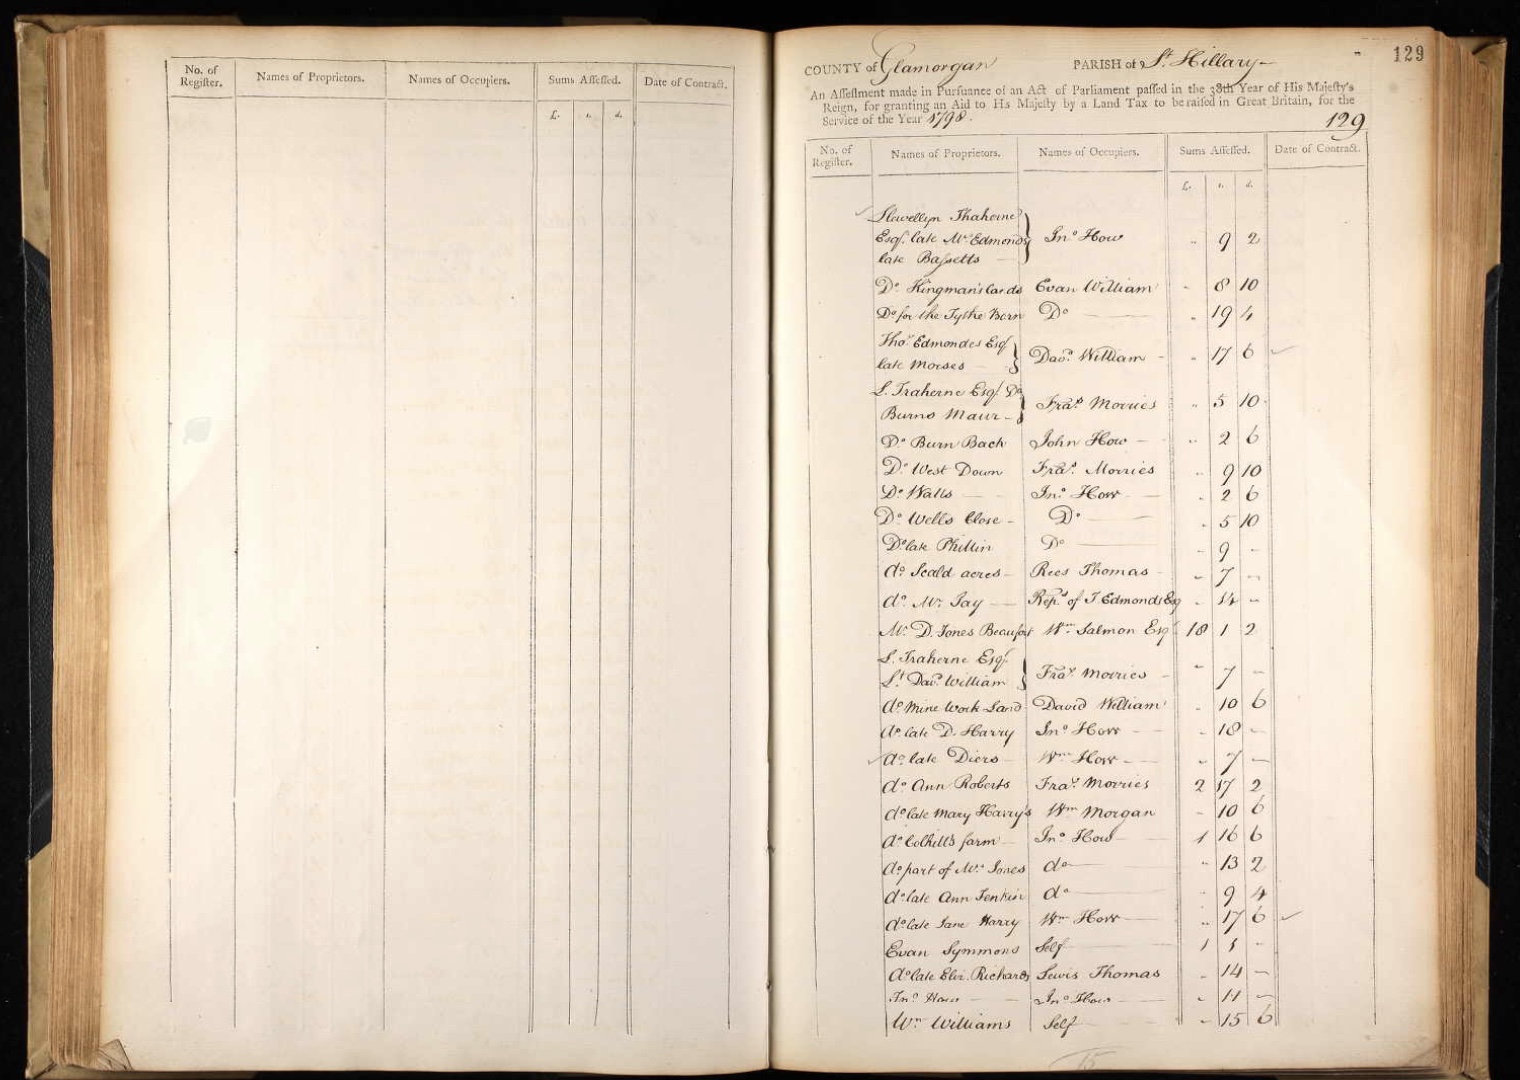 No. of Register. Names of Proprietors. Names of Occupiers. Sums Assessed. Date of Contract.
£. s. d.
129
COUNTY of Glamorgan PARISH of St. Hillary
An Assessment made in Pursuance of an Act of Parliament passed in the 38th Year of His Majesty's
Reign, for granting an Aid to His Majesty by a Land Tax to be raised in Great Britain, for the
Service of the Year 1798.
129
No. of Register. Names of Proprietors. Names of Occupiers. Sums Assessed. Date of Contract.
£. s. d.
Llewellyn Traherne
Esqr. late Mrs Edmonds Jno How " 9 2
late Bassetts
Do Kingman's lands Evan William " 8 10
Do for the Tythe Barn Do " 19 4
Thos Edmondes Esqr
late Morses Davd William " 17 6
L. Traherne Esqr Do
Burns Maur Fras Morries " 5 10
Do Burn Back John How " 2 6
Do West Down Fras Morries " 9 10
Do Walls Jno How " 2 6
Do Wells Close Do " 5 10
Do late Phillin Do " 9 "
do Scald acres Rees Thomas " 7 "
do Mr Jay Reps of T Edmonds Esq " 14 "
Mr D. Jones Beaufort Wm Salmon Esqr 18 1 2
L. Traherne Esqr
Davd William Fras Morries " 7 "
do Mine Work Land David William " 10 6
do late D. Harry Jno How " 18 "
do late Diers Wm How " 7 "
do Ann Roberts Fras Morries 2 17 2
do late Mary Harry's Wm Morgan " 10 6
do Colhill's farm Jno How 1 16 6
do part of Mrs Jones do " 13 2
do late Ann Jenkin do " 9 4
do late Jane Harry Wm How " 17 6
Evan Symmons Self 1 1 "
do late Eliz. Richards Lewis Thomas " 14 "
Jno How Jno How " 11 "
Wm Williams Self " 15 6
15